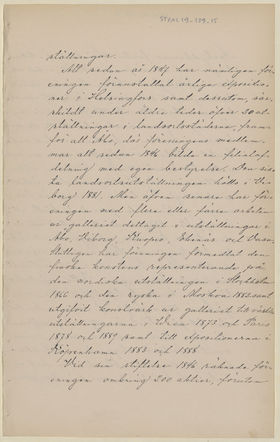 STENL19-139.15
ställningar.
Allt sedan år 1847 har nämligen för-
eningen föranstaltat årliga expositio-
ner i Helsingfors samt dessutom, sär-
skildt under äldre tider äfven konst-
utställningar i landsortsstäderna, fram-
för allt Åbo, där föreningens medlem-
mar allt sedan 1846 bilda en filialaf-
delning med egen bestyrelse. Den sis-
ta landsortsutställningen hölls i Vi-
borg 1881. Men äfven senare har för-
eningen med flere eller färre arbeten
ur galleriet deltagit i utställningar i
Åbo, Viborg, Kuopio, Ekenäs och Vasa.
Slutligen har föreningen förmedlat den
finska konstens representerande på
den nordiska utställningen i Stockholm
1866 och den ryska i Moskwa 1882 samt
utgifvit konstverk ur galleriet till världs-
utställningarna i Wien 1873 och Paris
1878 och 1889 samt till expositionerna i
Köpenhamn 1883 och 1888.
Vid sin stiftelse 1846 räknade för-
eningen omkring 200 aktier, förutom